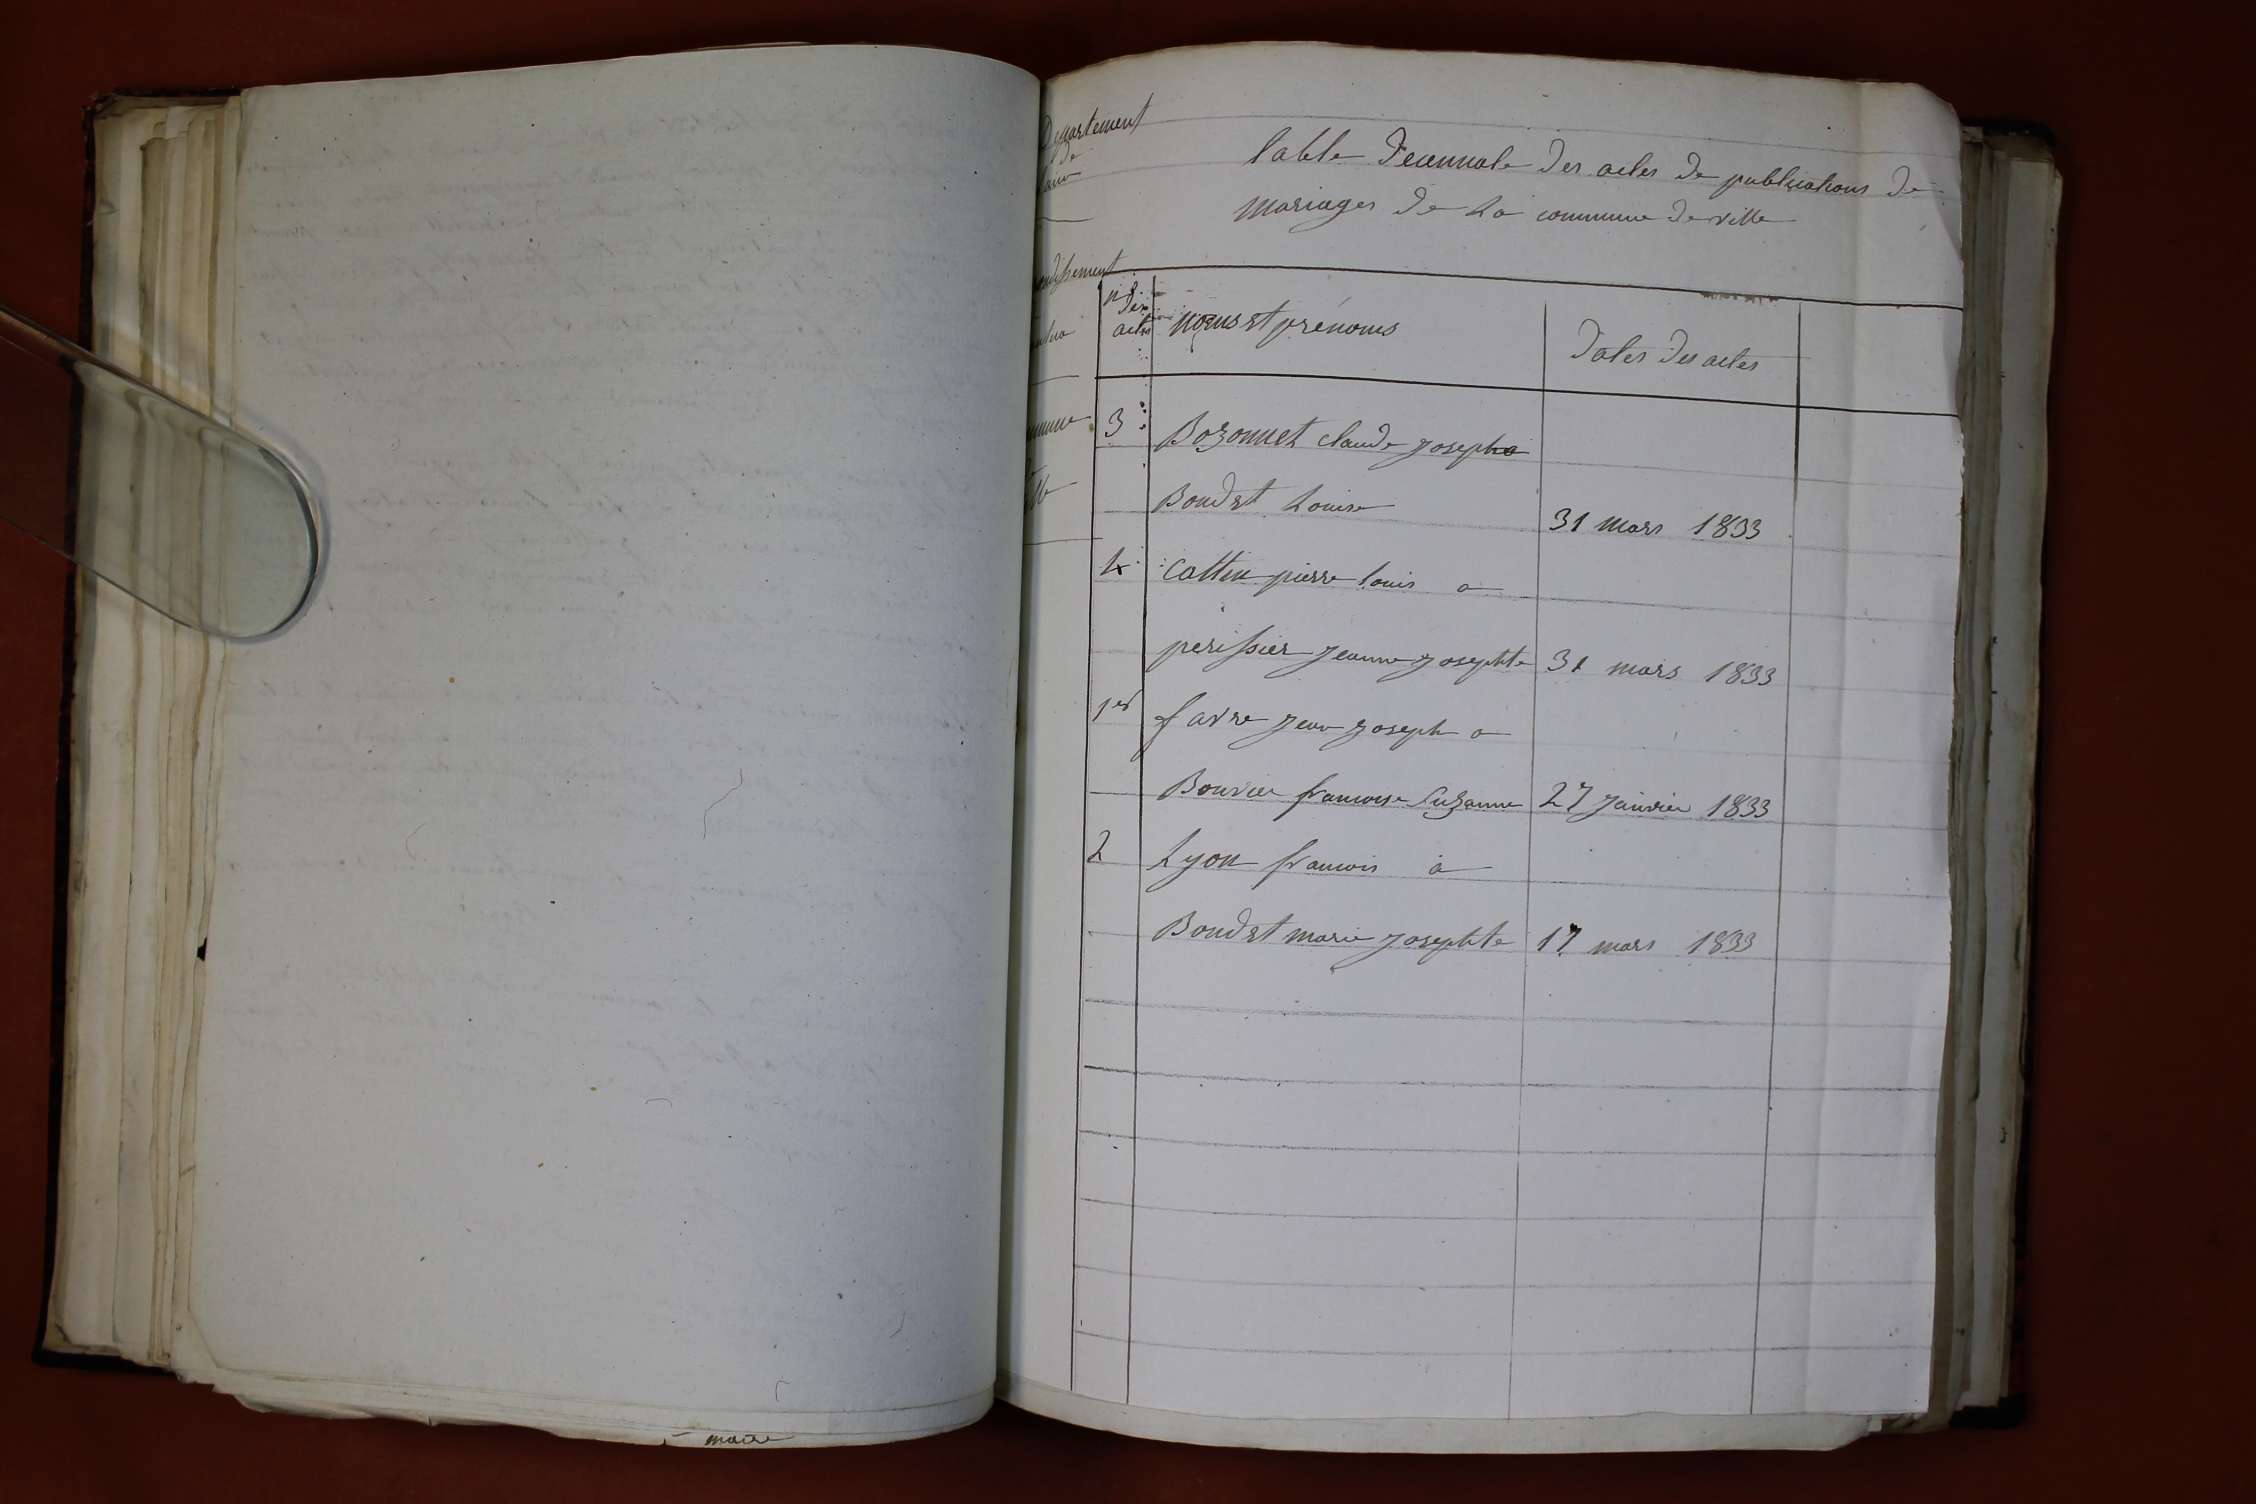 Departement
de
lain
table Decennale Des actes De publications De
mariages De La commune De ville
ondissement
nos
Des
actes
noms et prénoms
Dates Des actes
mmune
3
Bozonnet claude Joseph a
Boudet Louise
31 mars 1833
4
Cattin pierre Louis a
perissier Jeanne Josephte
31 mars 1833
1er
favre Jean Joseph a
Bouvier francoise Suzanne
27 Janvier 1833
2
Lyon francois à
Boudet marie Josephte
17 mars 1833
maire